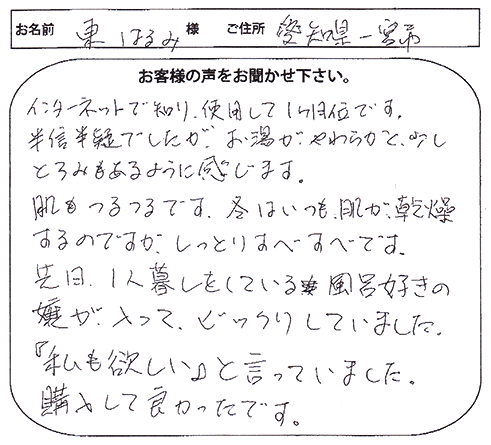 お名前 東 はるみ 様 ご住所 愛知県一宮市
お客様の声をお聞かせ下さい。
インターネットで知り、使用して1ヶ月位です。
半信半疑でしたが、お湯が、やわらかく、少し
とろみもあるように感じます。
肌もつるつるです。冬はいつも、肌が、乾燥
するのですが、しっとりすべすべです。
先日、1人暮しをしている 風呂好きの
嬢が、入って、ビックリしていました。
『私も欲しい』と言っていました。
購入して良かったです。